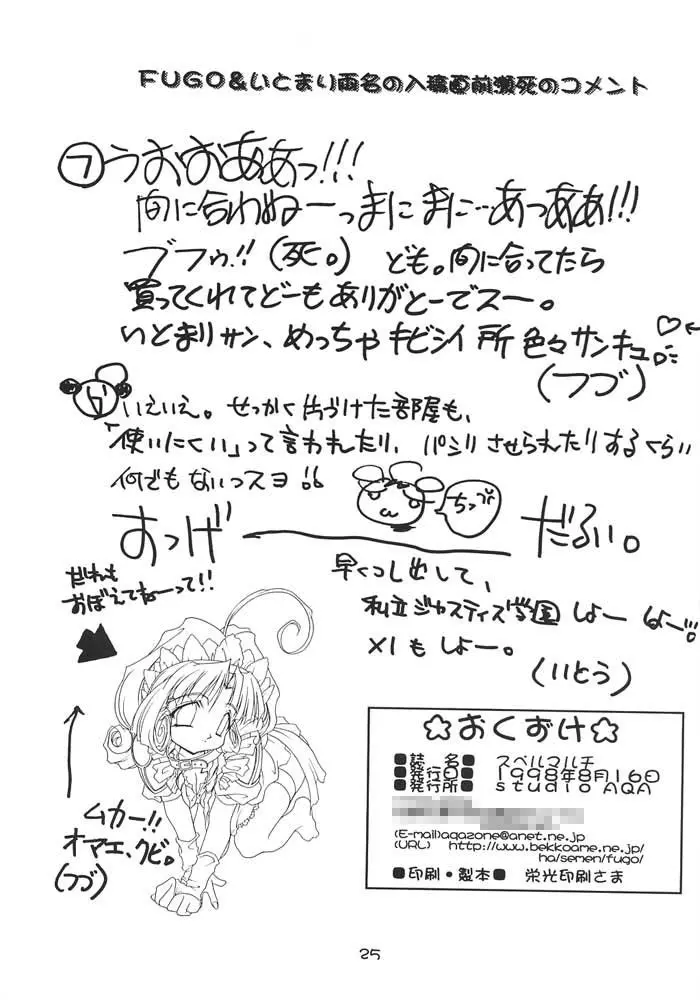 FUGO&いとまり両名の入稿直前瀕死のコメント
フ うおおおああっ!!!
間に合わぬーっまにまに…あっああ!!!
ブフゥ!!(死。) ども。間に合ってたら
買ってくれてどーもありがとーでスー。
いとまりサン、めっちゃキビシイ所色々サンキュ
(フブ)
いえいえ。せっかく片づけた部屋も、
「使いにくい」って言われたり、パシリさせられたりするくらい
何でもないっスヨ!!
ちっ
おっげーだるい。
だれも
おぼえてねーって!!
早くつし出して、
私立ジャスティス学園しよー しよー!!
X1もしよー。
(いとう)
ムカー!!
オマエ、クビ。
(フブ)
☆おくおけ☆
■誌 名■ スペルマルチ
■発行日■ 1998年8月16日
■発行所■ studio AQA
(E-mail)aqazone@anet.ne.jp
(URL) http://www.bekkoame.ne.jp/
ha/semen/fugo/
■印刷・製本■ 栄光印刷さま
25